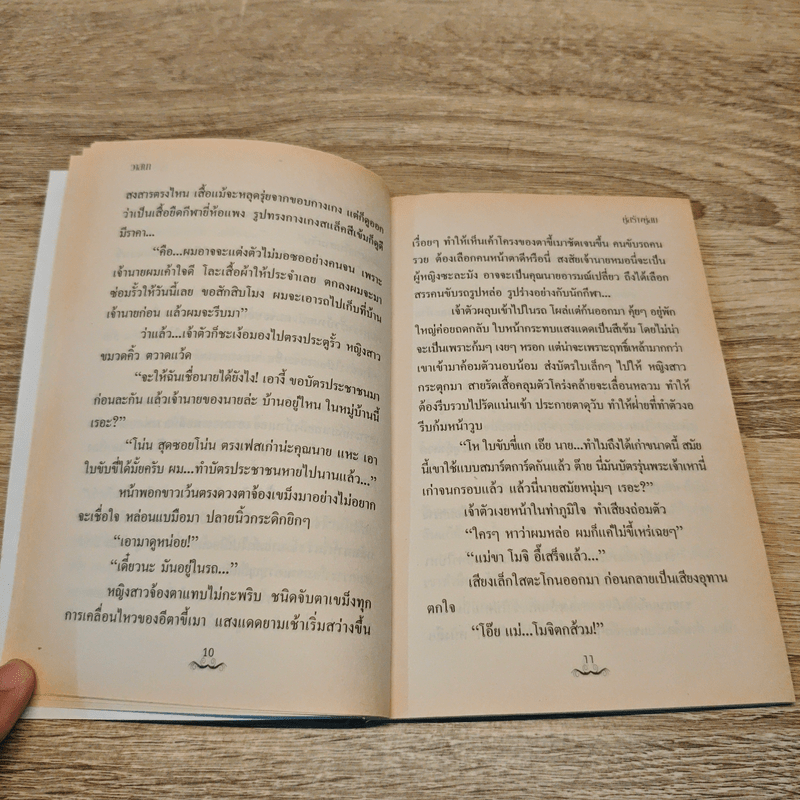 สงสารตรงไหน เสื้อแม้จะหลุดรุ่ยจากขอบกางเกง แต่ก็ดูออก
ว่าเป็นเสื้อยืดกีฬายี่ห้อแพง รูปทรงกางเกงสแล็คสีเข้มก็ดูดี
มีราคา...
“คือ...ผมอาจจะแต่งตัวไม่มอซออย่างคนจน เพราะ
เจ้านายผมเค้าใจดี โละเสื้อผ้าให้ประจำเลย ตกลงผมจะมา
ซ่อมรั้วให้วันนี้เลย ขอสักสิบโมง ผมจะเอารถไปเก็บที่บ้าน
เจ้านายก่อน แล้วผมจะรีบมา”
ว่าแล้ว...เจ้าตัวก็ชะเง้อมองไปตรงประตูรั้ว หญิงสาว
ขมวดคิ้ว ตวาดแว้ด
“จะให้ฉันเชื่อนายได้ยังไง! เอางี้ ขอบัตรประชาชนมา
ก่อนละกัน แล้วเจ้านายของนายล่ะ บ้านอยู่ไหน ในหมู่บ้านนี้
เรอะ?”
“โน่น สุดซอยโน่น ตรงเฟสเก่าน่ะคุณนาย แหะ เอา
ใบขับขี่ได้มั้ยครับ ผม...ทำบัตรประชาชนหายไปนานแล้ว...”
หน้าพอกขาวเว้นตรงดวงตาจ้องเขม็งมาอย่างไม่อยาก
จะเชื่อใจ หล่อนแบมือมา ปลายนิ้วกระดิกยิกๆ
“เอามาดูหน่อย!”
“เดี๋ยวนะ มันอยู่ในรถ...”
หญิงสาวจ้องตาแทบไม่กะพริบ ชนิดจับตาเขม็งทุก
การเคลื่อนไหวของอีตาขี้เมา แสงแดดยามเช้าเริ่มสว่างขึ้น
10
เรื่อยๆ ทำให้เห็นเค้าโครงของตาขี้เมาชัดเจนขึ้น คนขับรถคน
รวย ต้องเลือกคนหน้าตาดีหรือนี่ สงสัยเจ้านายหมอนี่จะเป็น
ผู้หญิงซะละมัง อาจจะเป็นคุณนายอารมณ์เปลี่ยว ถึงได้เลือก
สรรคนขับรถรูปหล่อ รูปร่างอย่างกับนักกีฬา...
เจ้าตัวผลุบเข้าไปในรถ โผล่แต่ก้นออกมา คุ้ยๆ อยู่พัก
ใหญ่ค่อยถดกลับ ใบหน้ากระทบแสงแดดเป็นสีเข้ม โดยไม่น่า
จะเป็นเพราะก้มๆ เงยๆ หรอก แต่น่าจะเพราะฤทธิ์เหล้ามากกว่า
เขาเข้ามาค้อมตัวนอบน้อม ส่งบัตรใบเล็กๆ ไปให้ หญิงสาว
กระตุกมา สายรัดเสื้อคลุมตัวโคร่งคล้ายจะเลื่อนหลวม ทำให้
ต้องรีบรวบไปรัดแน่นเข้า ประกายตาดุวับ ทำให้ฝ่ายที่ทำตัวงอ
รีบก้มหน้าวูบ
“โห ใบขับขี่แก เอ๊ย นาย...ทำไมถึงได้เก่าขนาดนี้ สมัย
นี้เขาใช้แบบสมาร์ตการ์ดกันแล้ว ต๊าย นี่มันบัตรรุ่นพระเจ้าเหานี่
เก่าจนกรอบแล้ว แล้วนี่นายสมัยหนุ่มๆ เรอะ?”
เจ้าตัวเงยหน้าในท่าภูมิใจ ทำเสียงถ่อมตัว
“ใครๆ หาว่าผมหล่อ ผมก็แค่ไม่ขี้เหร่เฉยๆ”
“แม่ขา โมจิ อึ๊เสร็จแล้ว...”
เสียงเล็กใสตะโกนออกมา ก่อนกลายเป็นเสียงอุทาน
ตกใจ
“โอ๊ย แม่...โมจิตกส้วม!”
11